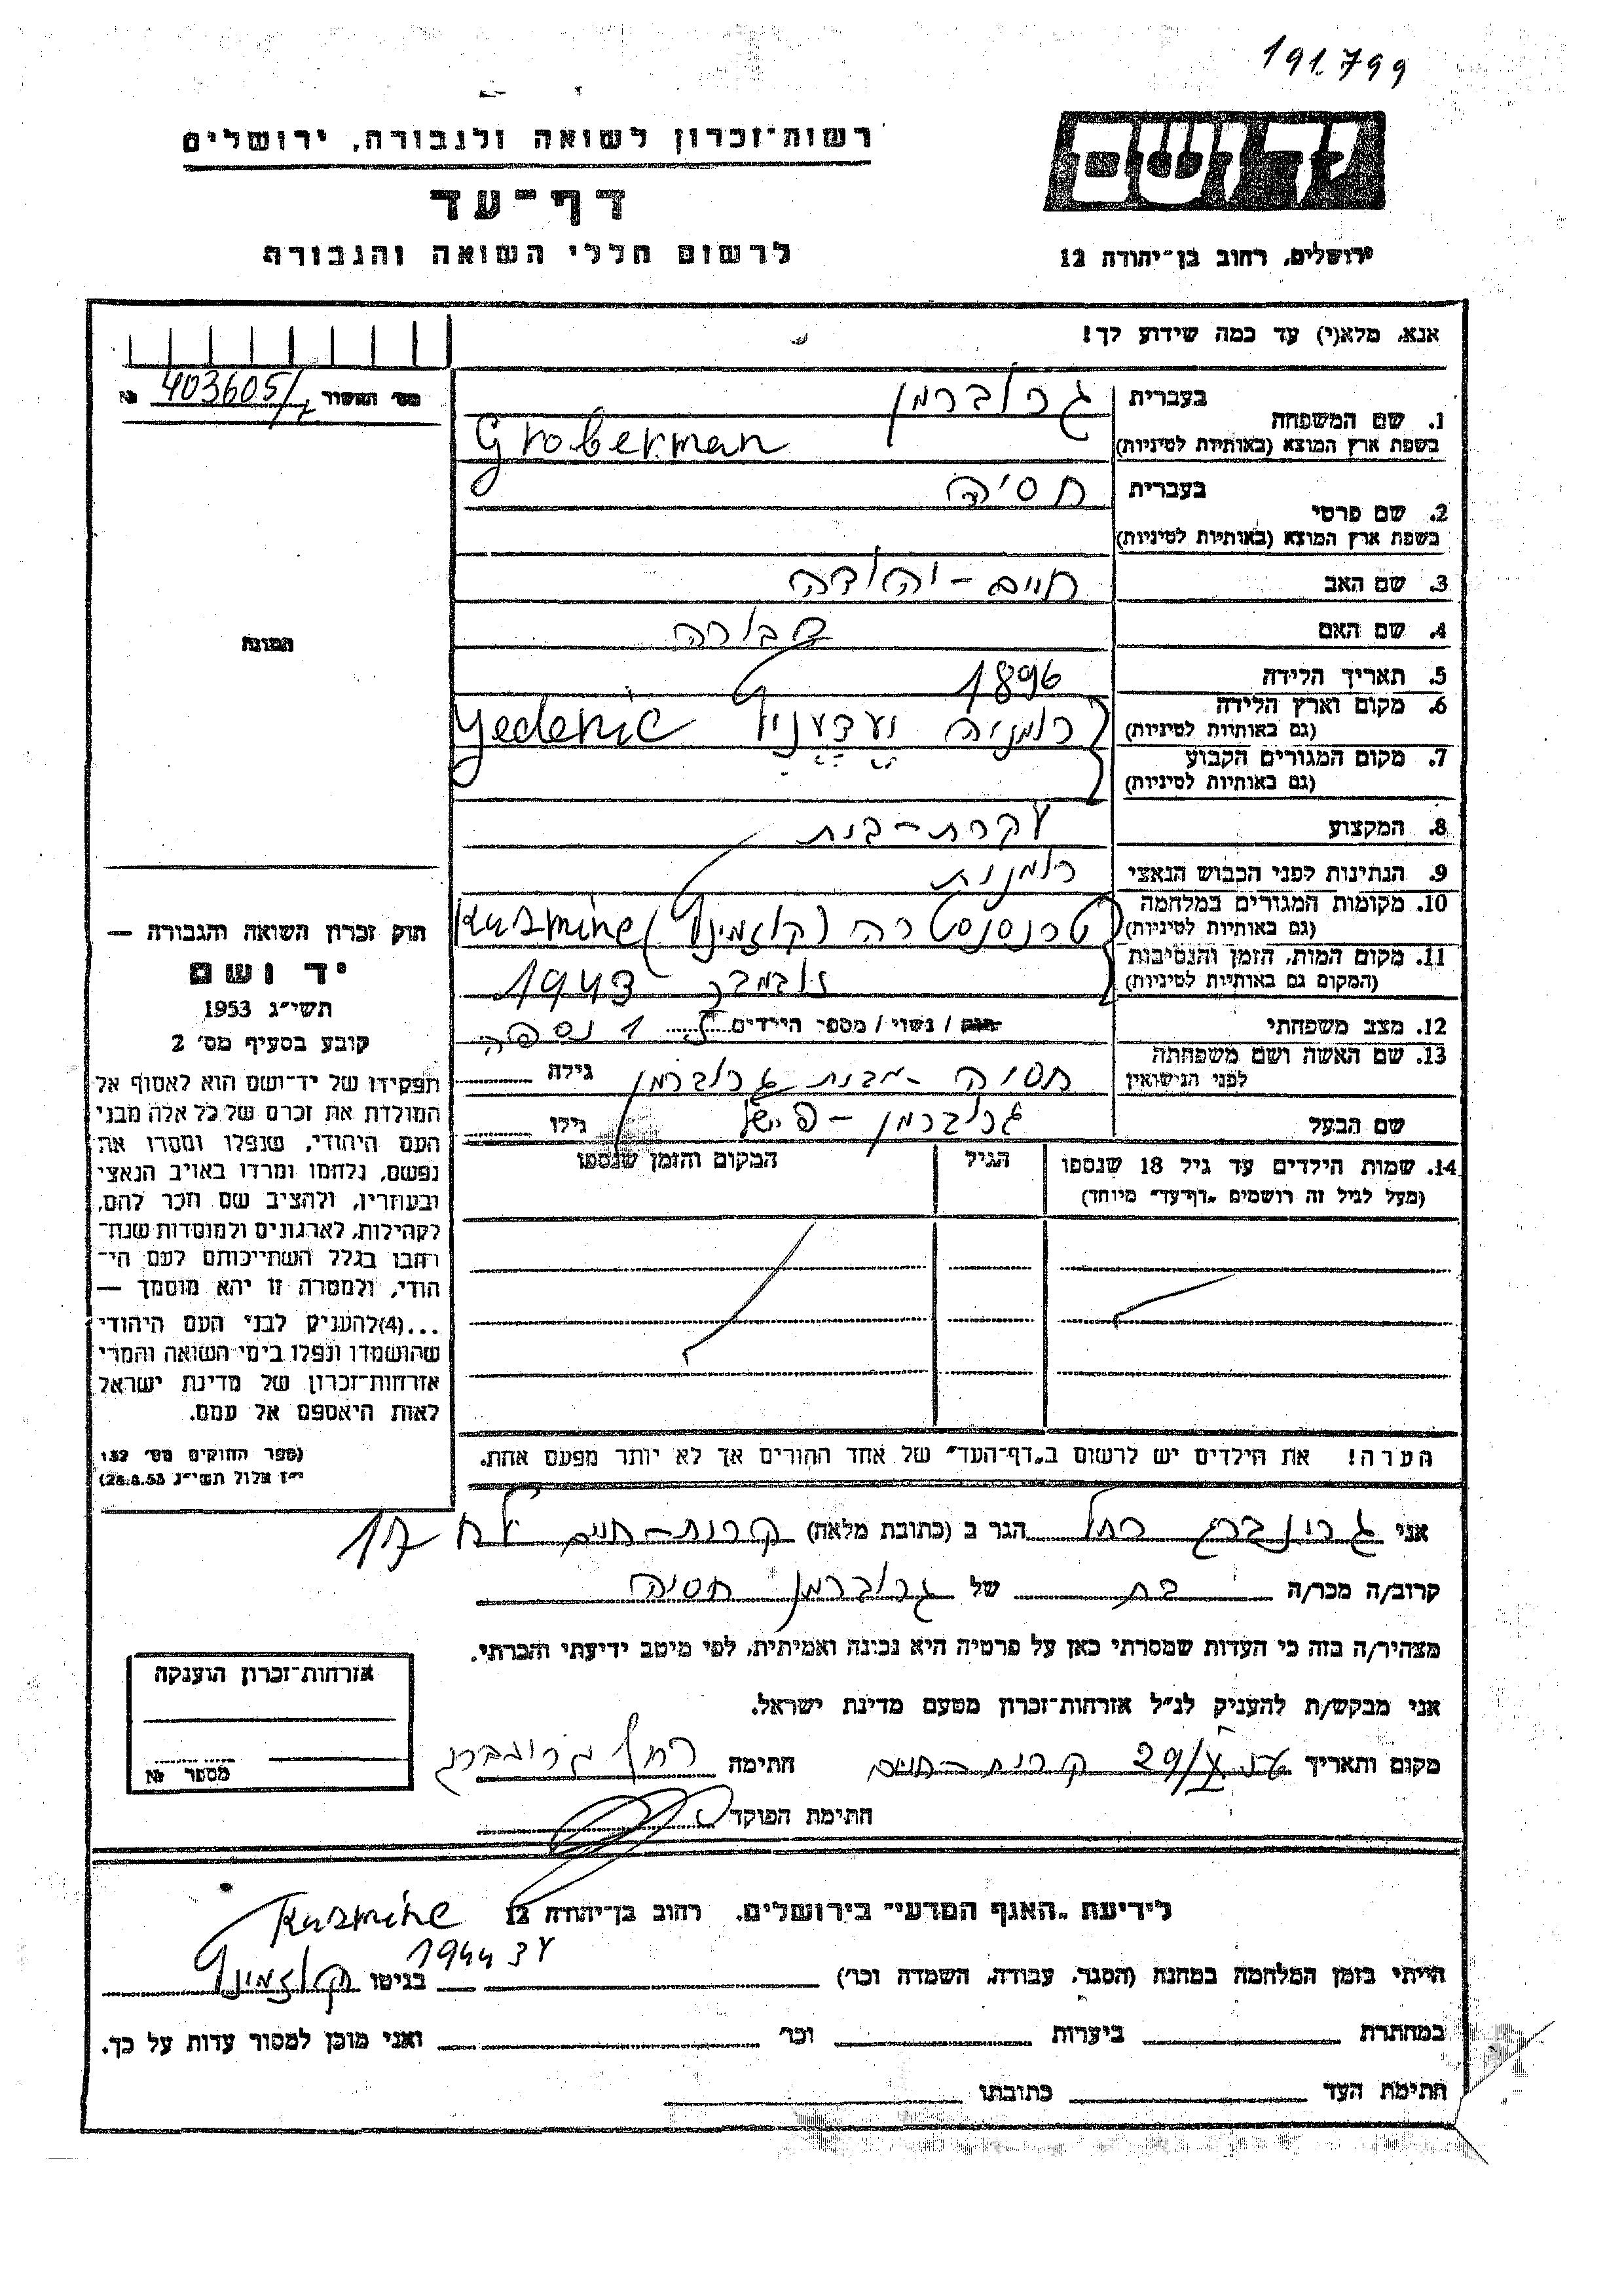 191.799
רשות־זכרון לשואה ולגבורה, ירושלים
דף־עד
לרשום חללי השואה והגבורה
יד ושם
ירושלים, רחוב בן־יהודה 12
אנא, מלא(י) עד כמה שידוע לך!
מס' האשור № 403605/
1. שם המשפחה
בעברית גרוברמן
בשפת ארץ המוצא (באותיות לטיניות) Groberman
2. שם פרטי
בעברית חסיה
בשפת ארץ המוצא (באותיות לטיניות)
3. שם האב חיים - יהודה
4. שם האם דבורה
5. תאריך הלידה 1896
6. מקום וארץ הלידה
(גם באותיות לטיניות) רומניה יעדעניץ Yedenic
7. מקום המגורים הקבוע
(גם באותיות לטיניות)
8. המקצוע עקרת-בית
9. הנתינות לפני הכבוש הנאצי רומנית
10. מקומות המגורים במלחמה
(גם באותיות לטיניות) טרנסנסטריה (קוזמינץ) Kusmine
11. מקום המות, הזמן והנסיבות
(המקום גם באותיות לטיניות) נובמבר 1943
12. מצב משפחתי רווק / נשוי / מספר הילדים 1 נספה
13. שם האשה ושם משפחתה
לפני הנישואין חסיה - מבית גרוברמן גילה
שם הבעל גרוברמן - פישל גילו
14. שמות הילדים עד גיל 18 שנספו
(מעל לגיל זה רושמים „דף־עד" מיוחד)
הגיל
המקום והזמן שנספו
הערה! את הילדים יש לרשום ב„דף־העד" של אחד ההורים אך לא יותר מפעם אחת.
התמונה
חוק זכרון השואה והגבורה —
יד ושם
תשי"ג 1953
קובע בסעיף מס' 2
תפקידו של יד־ושם הוא לאסוף אל
המולדת את זכרם של כל אלה מבני
העם היהודי, שנפלו ומסרו את
נפשם, נלחמו ומרדו באויב הנאצי
ובעוזריו, ולהציב שם וזכר להם,
לקהילות, לארגונים ולמוסדות שנח־
רבו בגלל השתייכותם לעם הי־
הודי, ולמטרה זו יהא מוסמך —
...(4)להעניק לבני העם היהודי
שהושמדו ונפלו בימי השואה והמרי
אזרחות־זכרון של מדינת ישראל
לאות היאספם אל עמם.
(ספר החוקים מס' 132
י"ז אלול תשי"ג 28.8.53)
אני גרינברג רחל הגר ב (כתובת מלאה) קרית-חיים 17
קרוב/ה מכר/ה בת של גרוברמן חסיה
מצהיר/ה בזה כי העדות שמסרתי כאן על פרטיה היא נכונה ואמיתית, לפי מיטב ידיעתי והכרתי.
אני מבקש/ת להעניק לנ"ל אזרחות־זכרון מטעם מדינת ישראל.
מקום ותאריך 29/X קרית-חיים חתימה רחל גרינברג
חתימת הפוקד
אזרחות־זכרון הוענקה
מספר №
לידיעת „האגף המדעי" בירושלים, רחוב בן־יהודה 12
הייתי בזמן המלחמה במחנה (הסגר, עבודה, השמדה וכו') 1944 בגיטו קוזמינץ Kusmine
במחתרת ביערות וכו' ואני מוכן למסור עדות על כך.
חתימת העד כתובתו